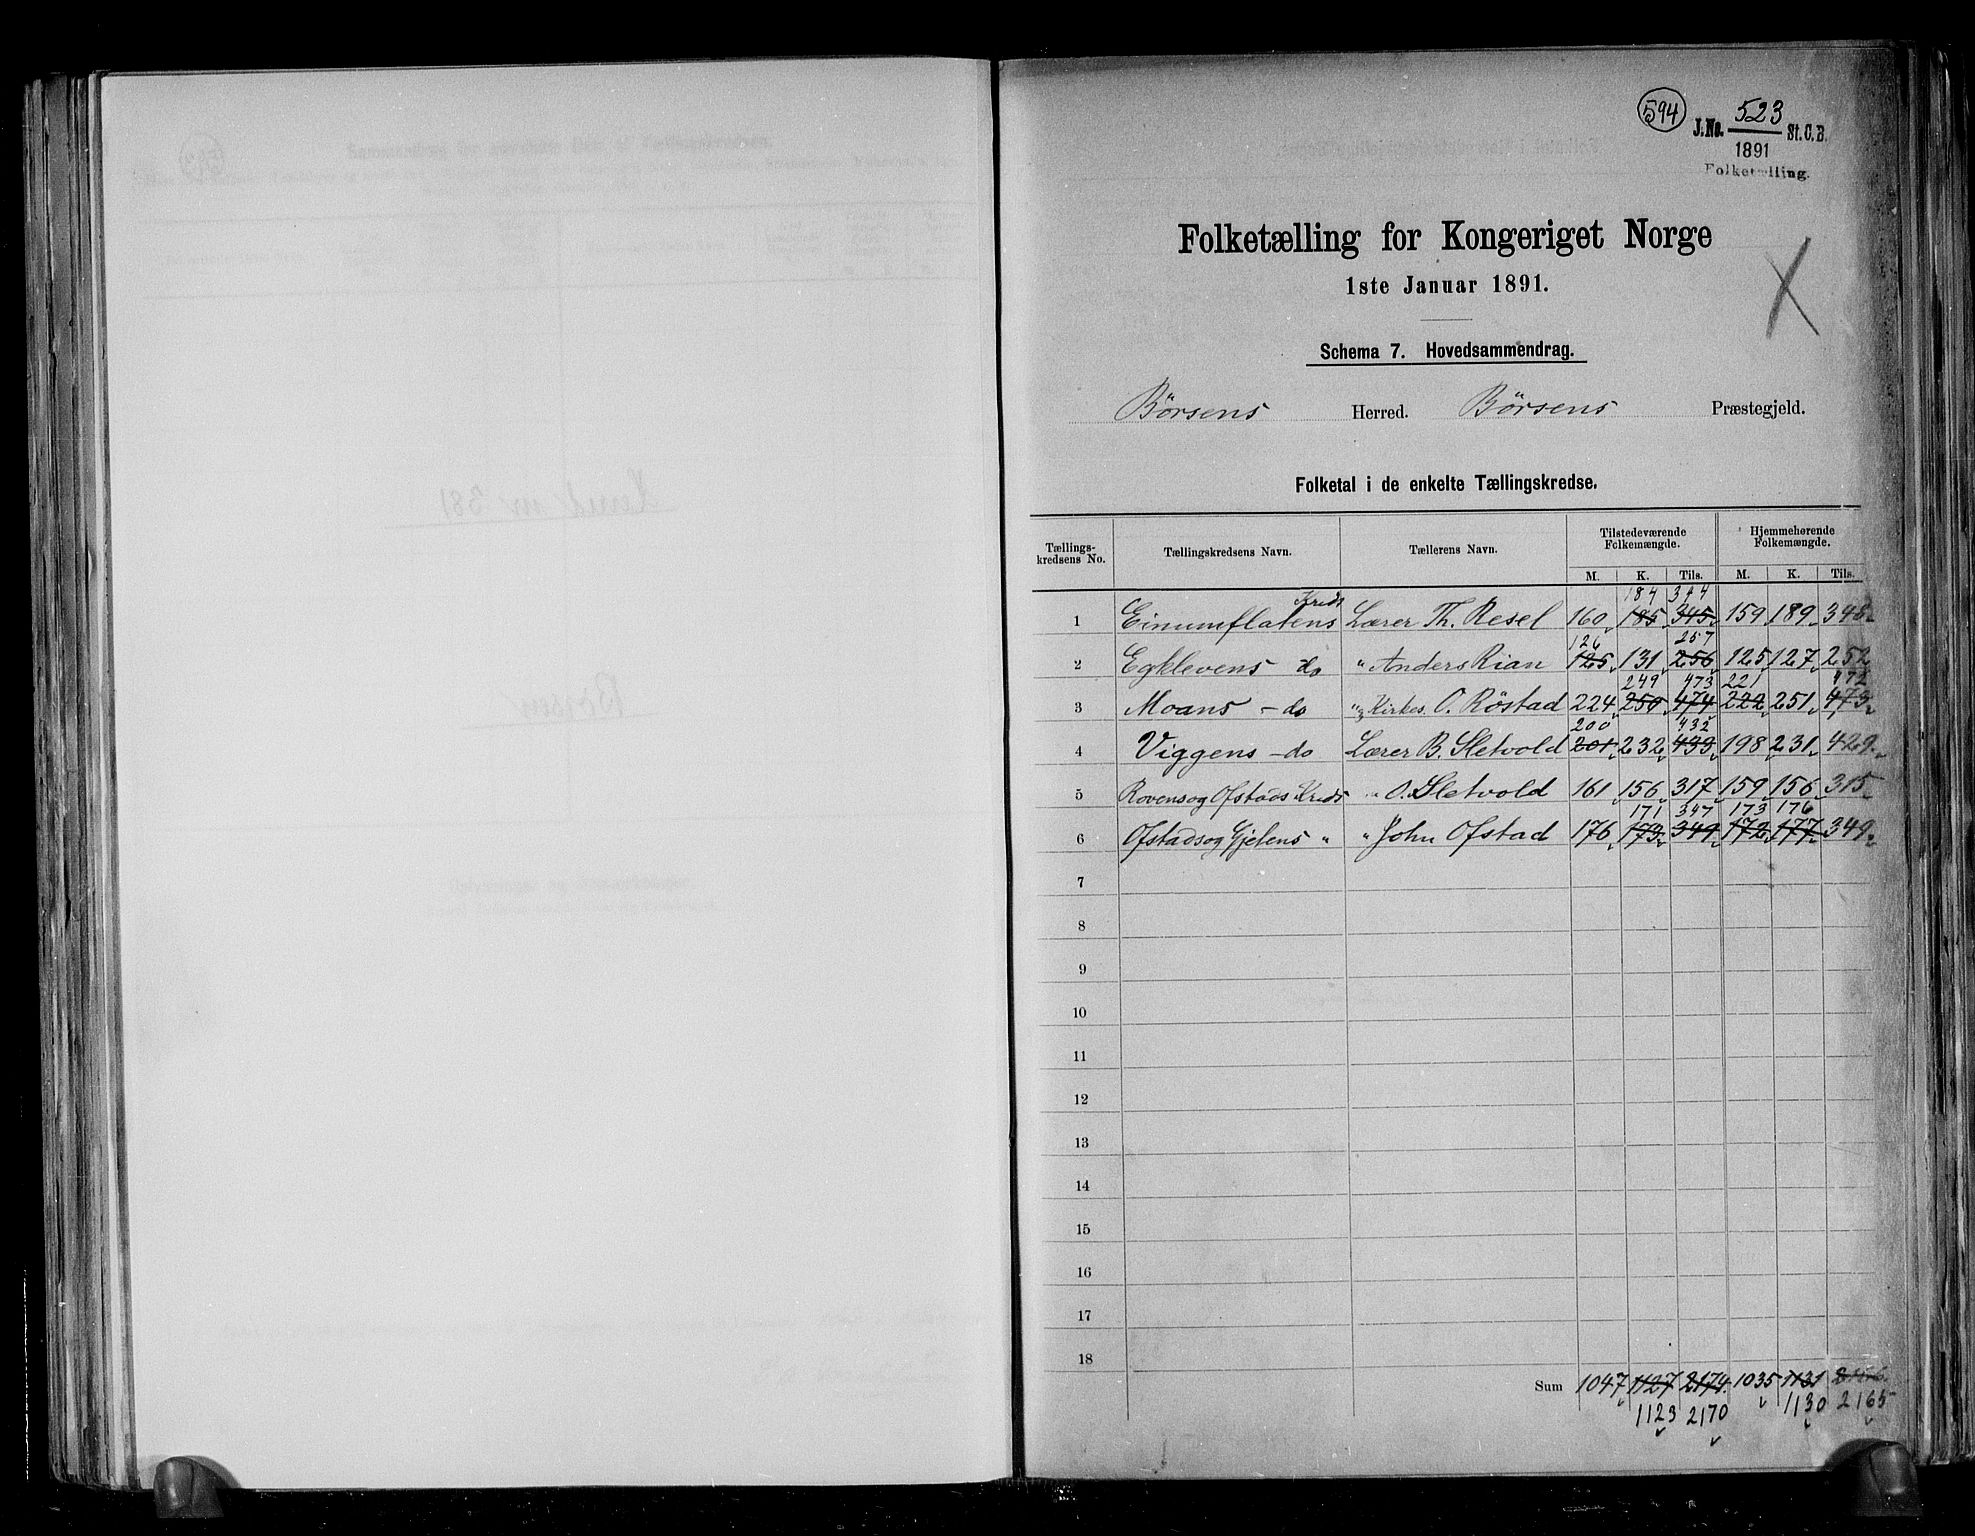 594
J.No. 523 St.C.B.
1891
Folketælling.
Folketælling for Kongeriget Norge
1ste Januar 1891.
Schema 7. Hovedsammendrag.
Börsens Herred. Börsens Præstegjeld.
Folketal i de enkelte Tællingskredse.
Tællings-kredsens No. Tællingskredsens Navn. Tællerens Navn. Tilstedeværende Folkemængde. Hjemmehørende Folkemængde.
M. K. Tils. M. K. Tils.
184 344
1 Einumflatens Kreds Lærer Th. Resel 160 185 345 159 189 348
126 257
2 Egklevens do " Anders Rian 125 131 256 125 127 252
249 473 221 472
3 Moans - do " Kirkes. O. Röstad 224 250 474 222 251 473
200 432
4 Viggens - do Lærer B. Sletvold 201 232 433 198 231 429
5 Rovens og Ofstads Kreds " O. Sletvold 161 156 317 159 156 315
171 347 173 176
6 Ofstads og Gjelens " " John Ofstad 176 173 349 172 177 349
7
8
9
10
11
12
13
14
15
16
17
18
Sum 1047 1127 2174 1035 1131
1123 2170 1130 2165